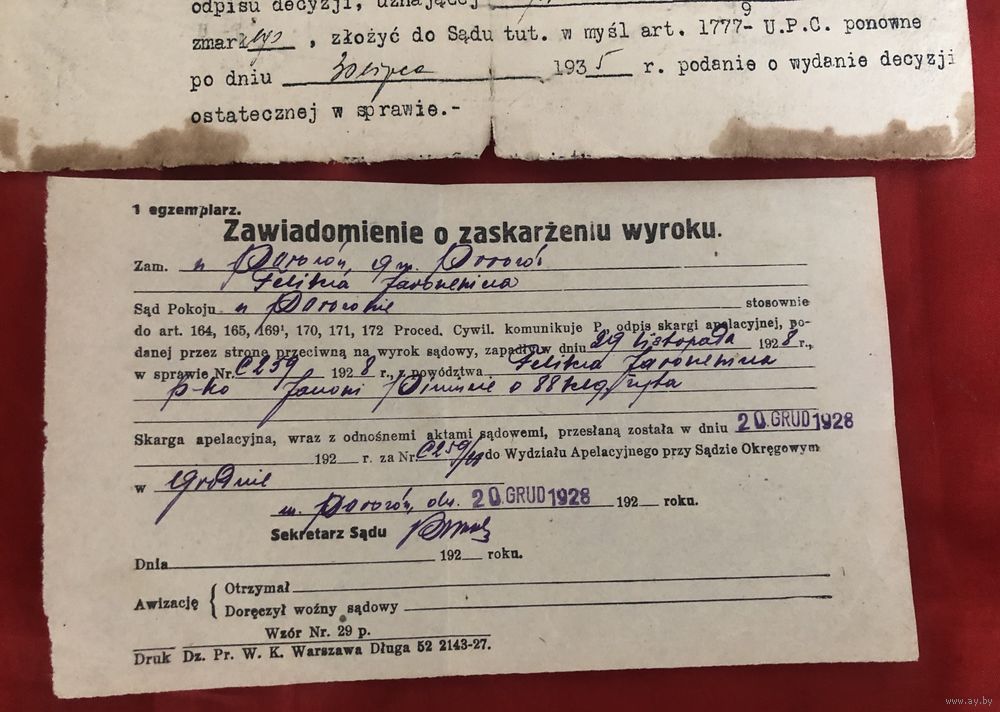 odpisu decyzji, uznającej
9
zmarłego , złożyć do Sądu tut. w myśl art. 1777- U.P.C. ponowne
po dniu 30 lipca 1935 r. podanie o wydanie decyzji
ostatecznej w sprawie.-
1 egzemplarz.
Zawiadomienie o zaskarżeniu wyroku.
Zam. w Porozów, gm. Porozów
Feliksa
Sąd Pokoju w Porozowie stosownie
do art. 164, 165, 169¹, 170, 171, 172 Proced. Cywil. komunikuje P. odpis skargi apelacyjnej, po-
danej przez stronę przeciwną na wyrok sądowy, zapadły w dniu 29 listopada 1928 r.,
w sprawie Nr. C 259 1928 r., z powództwa Feliksa
p-ko o 88 klg. żyta
Skarga apelacyjna, wraz z odnośnemi aktami sądowemi, przesłaną została w dniu 20. GRUD 1928
192 r. za Nr. C 259/28 do Wydziału Apelacyjnego przy Sądzie Okręgowym
w Grodnie
m. Porozów, dn. 20 GRUD 1928 192 roku.
Sekretarz Sądu
Dnia 192 roku.
Awizację { Otrzymał
Doręczył woźny sądowy
Wzór Nr. 29 p.
Druk Dz. Pr. W. K. Warszawa Długa 52 2143-27.
www.ay.by